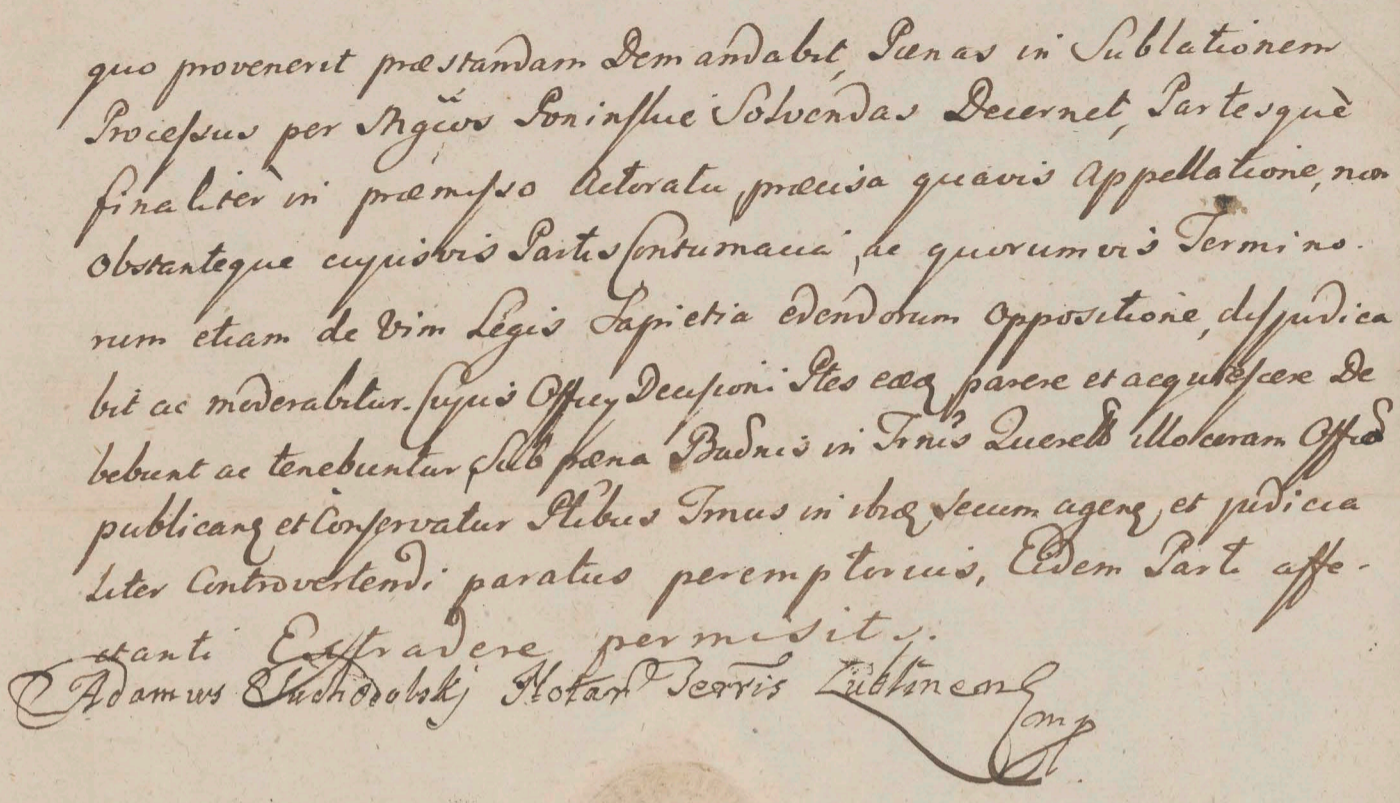 quo provenerit præstandam Demandabit, Pænas in Sublationem
Processus per Mgcos Poninskie Solvendas Decernet, Partesquè
finalitèr in præmisso Actoratu, præcisa quavis Appellatione, non
obstanteque cujusvis Partis Contumacia, ac quorumvis Termino-
rum etiam de Vim Legis Sapietia edendorum oppositione, disjudica
bit ac moderabitur. Cujus Officy Decisioni Ptes eæq parere et acquiescere De
bebunt ac tenebuntur, Sub pæna Badnis in Trnis Querell illo ceram Officio
publicanq et Conservatur Ptibus Trnus in ibiq secum agenq, et judicia
liter Controvertendi paratus peremptorius, Eidem Parti affe-
ctanti Extradere permisit.
Adamus Suchodolskj Notar Terris Lublinen mp